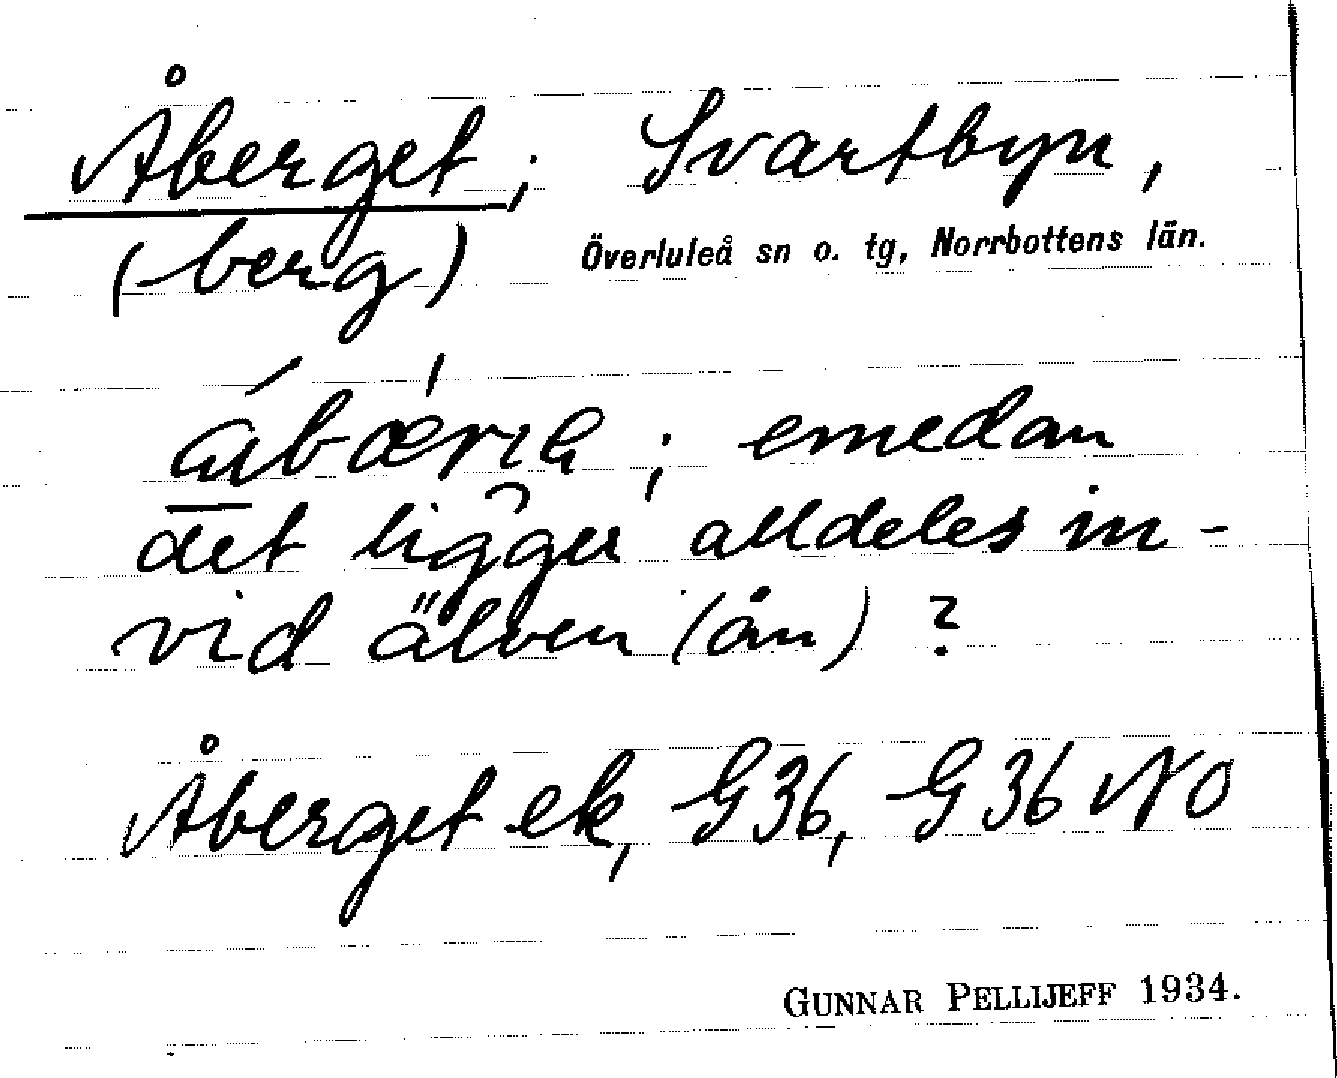 Åberget; Svartbyn,
(berg) Överluleå sn o. tg, Norrbottens län.
; emedan
det ligger alldeles in-
vid älven (ån) ?
Åberget ek, G36, G36 NO
GUNNAR PELLIJEFF 1934.